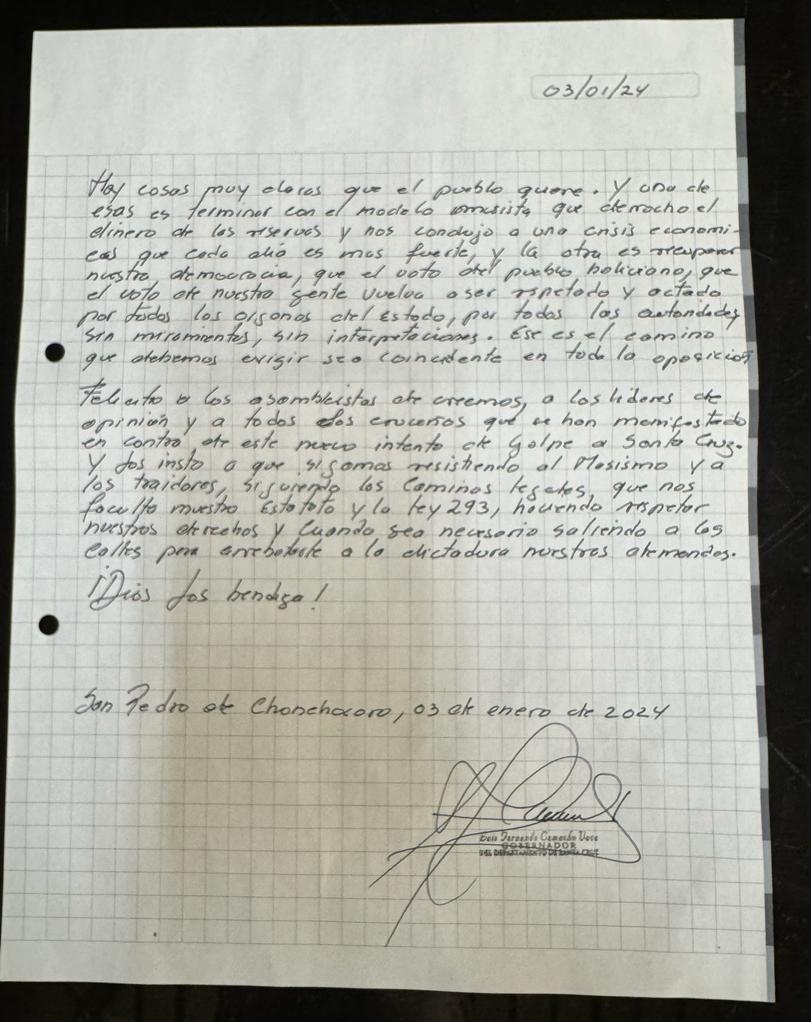 03/01/24
Hay cosas muy claras que el pueblo quiere. Y una de
esas es terminar con el modelo masista que derrocho el
dinero de las reservas y nos condujo a una crisis economi-
ca que cada año es mas fuerte, y la otra es recuperar
nuestra democracia, que el voto del pueblo boliviano, que
el voto de nuestra gente vuelva a ser respetado y acatado
por todos los organos del Estado, por todas las autoridades
sin miramientos, sin interpretaciones. Ese es el camino
que debemos exigir sea coincidente en toda la oposición
Felicito a los asambleistas de creemos, a los lideres de
opinión y a todos los cruceños que se han manifestado
en contra de este nuevo intento de Golpe a Santa Cruz.
Y los insto a que sigamos resistiendo al Masismo y a
los traidores, siguiendo los caminos legales, que nos
faculta nuestro Estatuto y la Ley 293, haciendo respetar
nuestros derechos y cuando sea necesario saliendo a las
calles para arrebatarle a la dictadura nuestras demandas.
¡Dios los bendiga!
San Pedro de Chonchocoro, 03 de enero de 2024
Luis Fernando Camacho Vaca
GOBERNADOR
DEL DEPARTAMENTO DE SANTA CRUZ